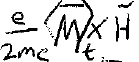 e/2mc \overline{M_t} × \overline{H}